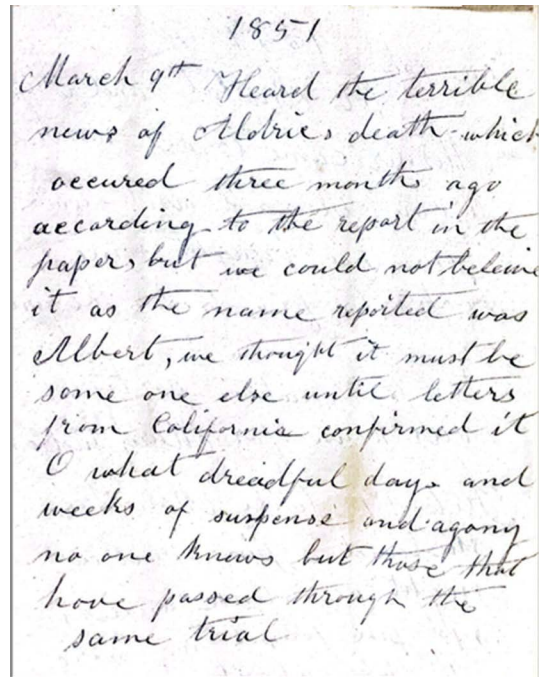 1851
March 9th Heard the terrible
news of Aldrics death which
occured three month ago
according to the report in the
papers but we could not beleive
it as the name reported was
Albert, we thought it must be
some one else until letters
from California confirmed it
O what dreadful days and
weeks of suspense and agony
no one knows but those that
have passed through the
same trial